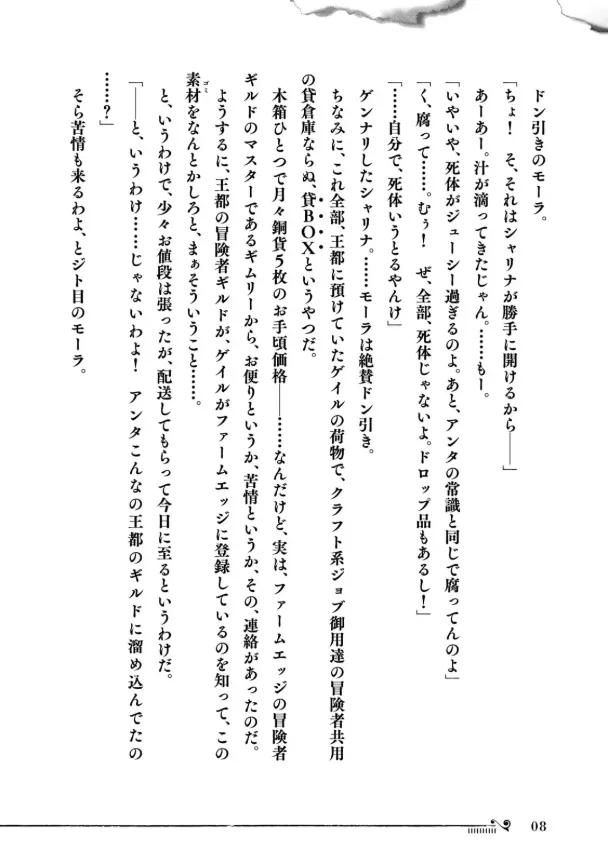 ドン引きのモーラ。
「ちょ！　そ、それはシャリナが勝手に開けるから――」
あーあー。汁が滴ってきたじゃん。……もー。
「いやいや、死体がジューシー過ぎるのよ。あと、アンタの常識と同じで腐ってんのよ」
「く、腐って……。むぅ！　ぜ、全部、死体じゃないよ。ドロップ品もあるし！」
「……自分で、死体いうとるやんけ」
ゲンナリしたシャリナ。……モーラは絶賛ドン引き。
ちなみに、これ全部、王都に預けていたゲイルの荷物で、クラフト系ジョブ御用達の冒険者共用
の貸倉庫ならぬ、貸BOXというやつだ。
木箱ひとつで月々銅貨5枚のお手頃価格――……なんだけど、実は、ファームエッジの冒険者
ギルドのマスターであるギムリーから、お便りというか、苦情というか、その、連絡があったのだ。
ようするに、王都の冒険者ギルドが、ゲイルがファームエッジに登録しているのを知って、この
素材をなんとかしろと、まぁそういうこと……。
ゴミ
と、いうわけで、少々お値段は張ったが、配送してもらって今日に至るというわけだ。
「――と、いうわけ……じゃないわよ！　アンタこんなの王都のギルドに溜め込んでたの
……？」
そら苦情も来るわよ、とジト目のモーラ。
08